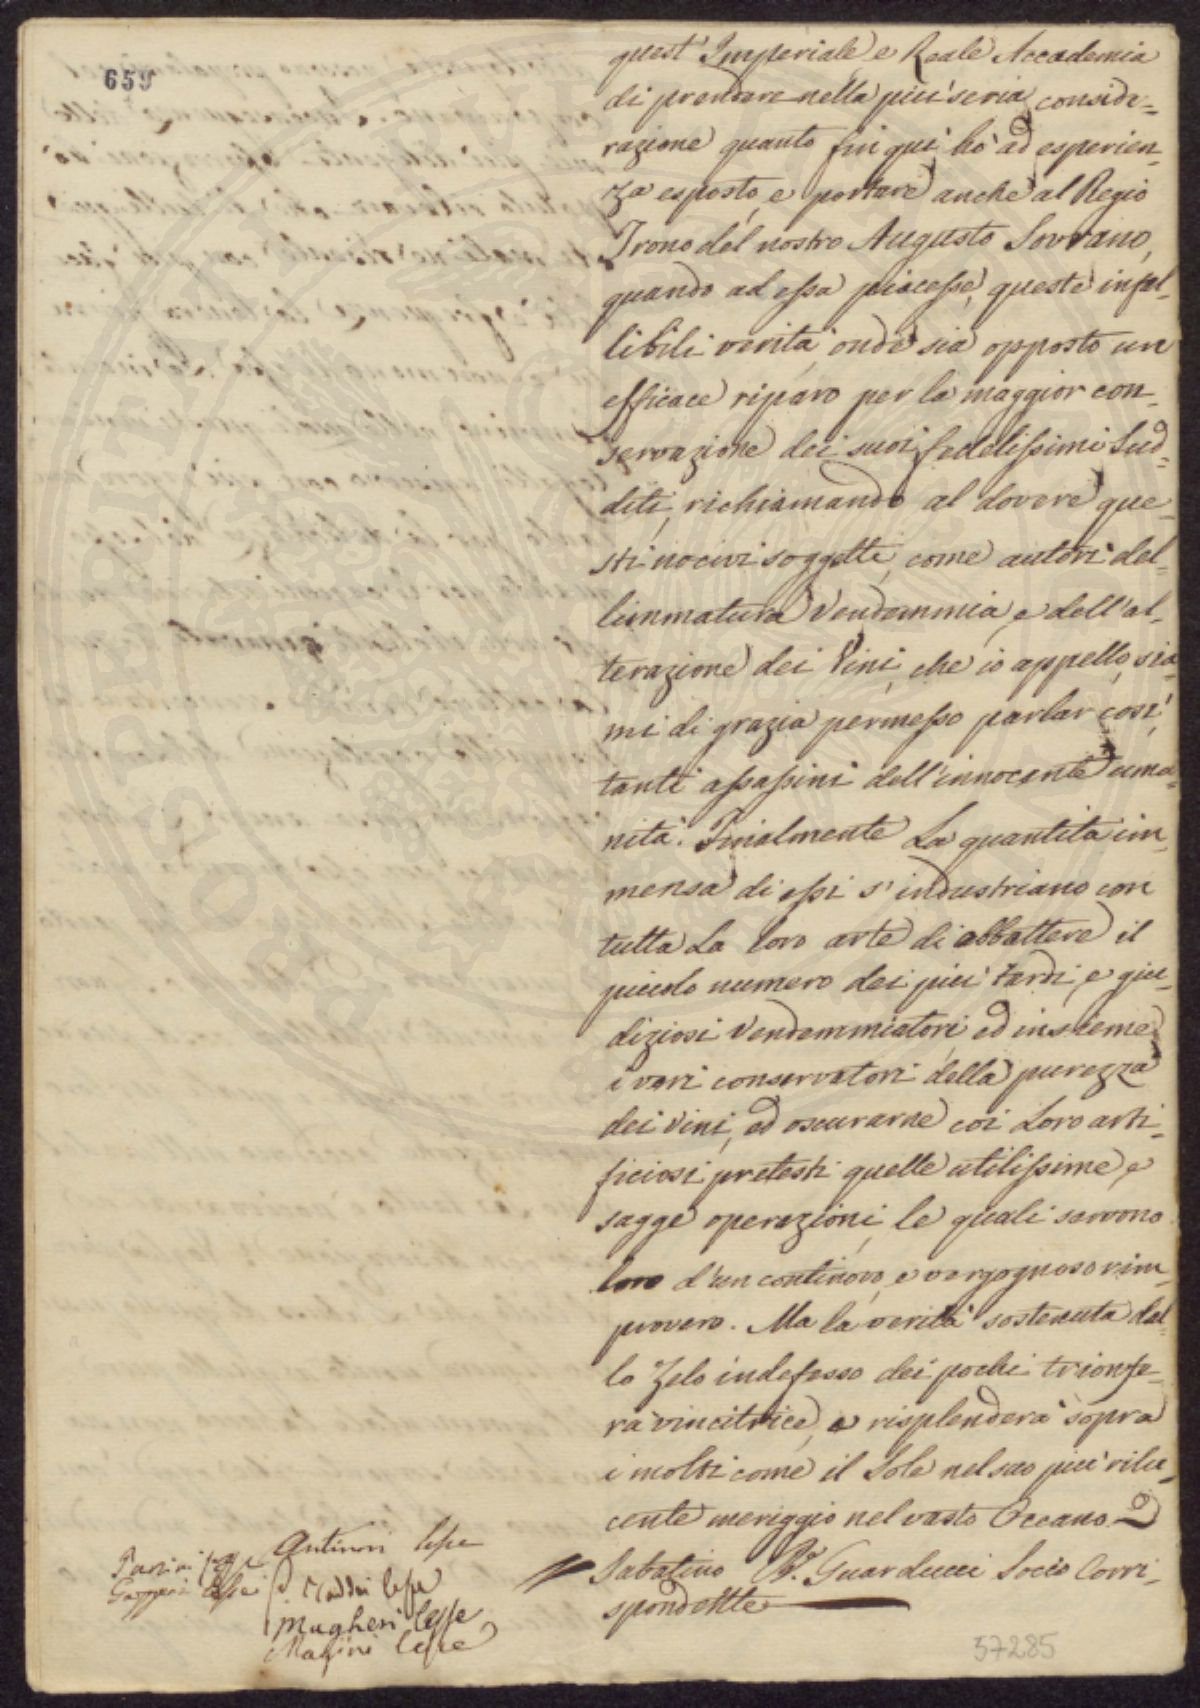 659
quest'Imperiale e Reale Accademia
di prendere nella più seria conside-
razione quanto fin qui hò ad esperien-
za esposto, e portare anche al Regio
Trono del nostro Augusto Sovrano,
quando ad essa piacesse, queste infal-
libili verità, onde sia opposto un
efficace riparo per la maggior con-
servazione dei suoi fedelissimi Sud-
diti, richiamando al dovere que-
sti nocivi soggetti, come autori del-
l'immatura Vendemmia, e dell'al-
terazione dei Vini, che io appello, sia-
mi di grazia permesso parlar così,
tanti assassini dell'innocente uma-
nità. Finalmente La quantità im-
mensa di essi s'industriano con
tutta La loro arte di abbattere il
piccolo numero dei più tardi, e giu-
diziosi Vendemmiatori, ed insieme
i veri conservatori della purezza
dei Vini, ed oscurarne coi Loro arti-
ficiosi pretesti quelle utilissime, e
sagge operazioni, le quali servono
loro d'un continovo, e vergognoso rim-
provero. Ma la verità sostenuta dal-
lo Zelo indefesso dei pochi trionfe-
rà vincitrice, e risplenderà sopra
i molti come il Sole nel suo più rilu-
cente meriggio nel vasto Occeano.
Sabatino Guarducci Socio Corri-
spondente
Antinori lesse
Gazzeri lesse
Taddei lesse
Magheri lesse
Mazini lesse
57285